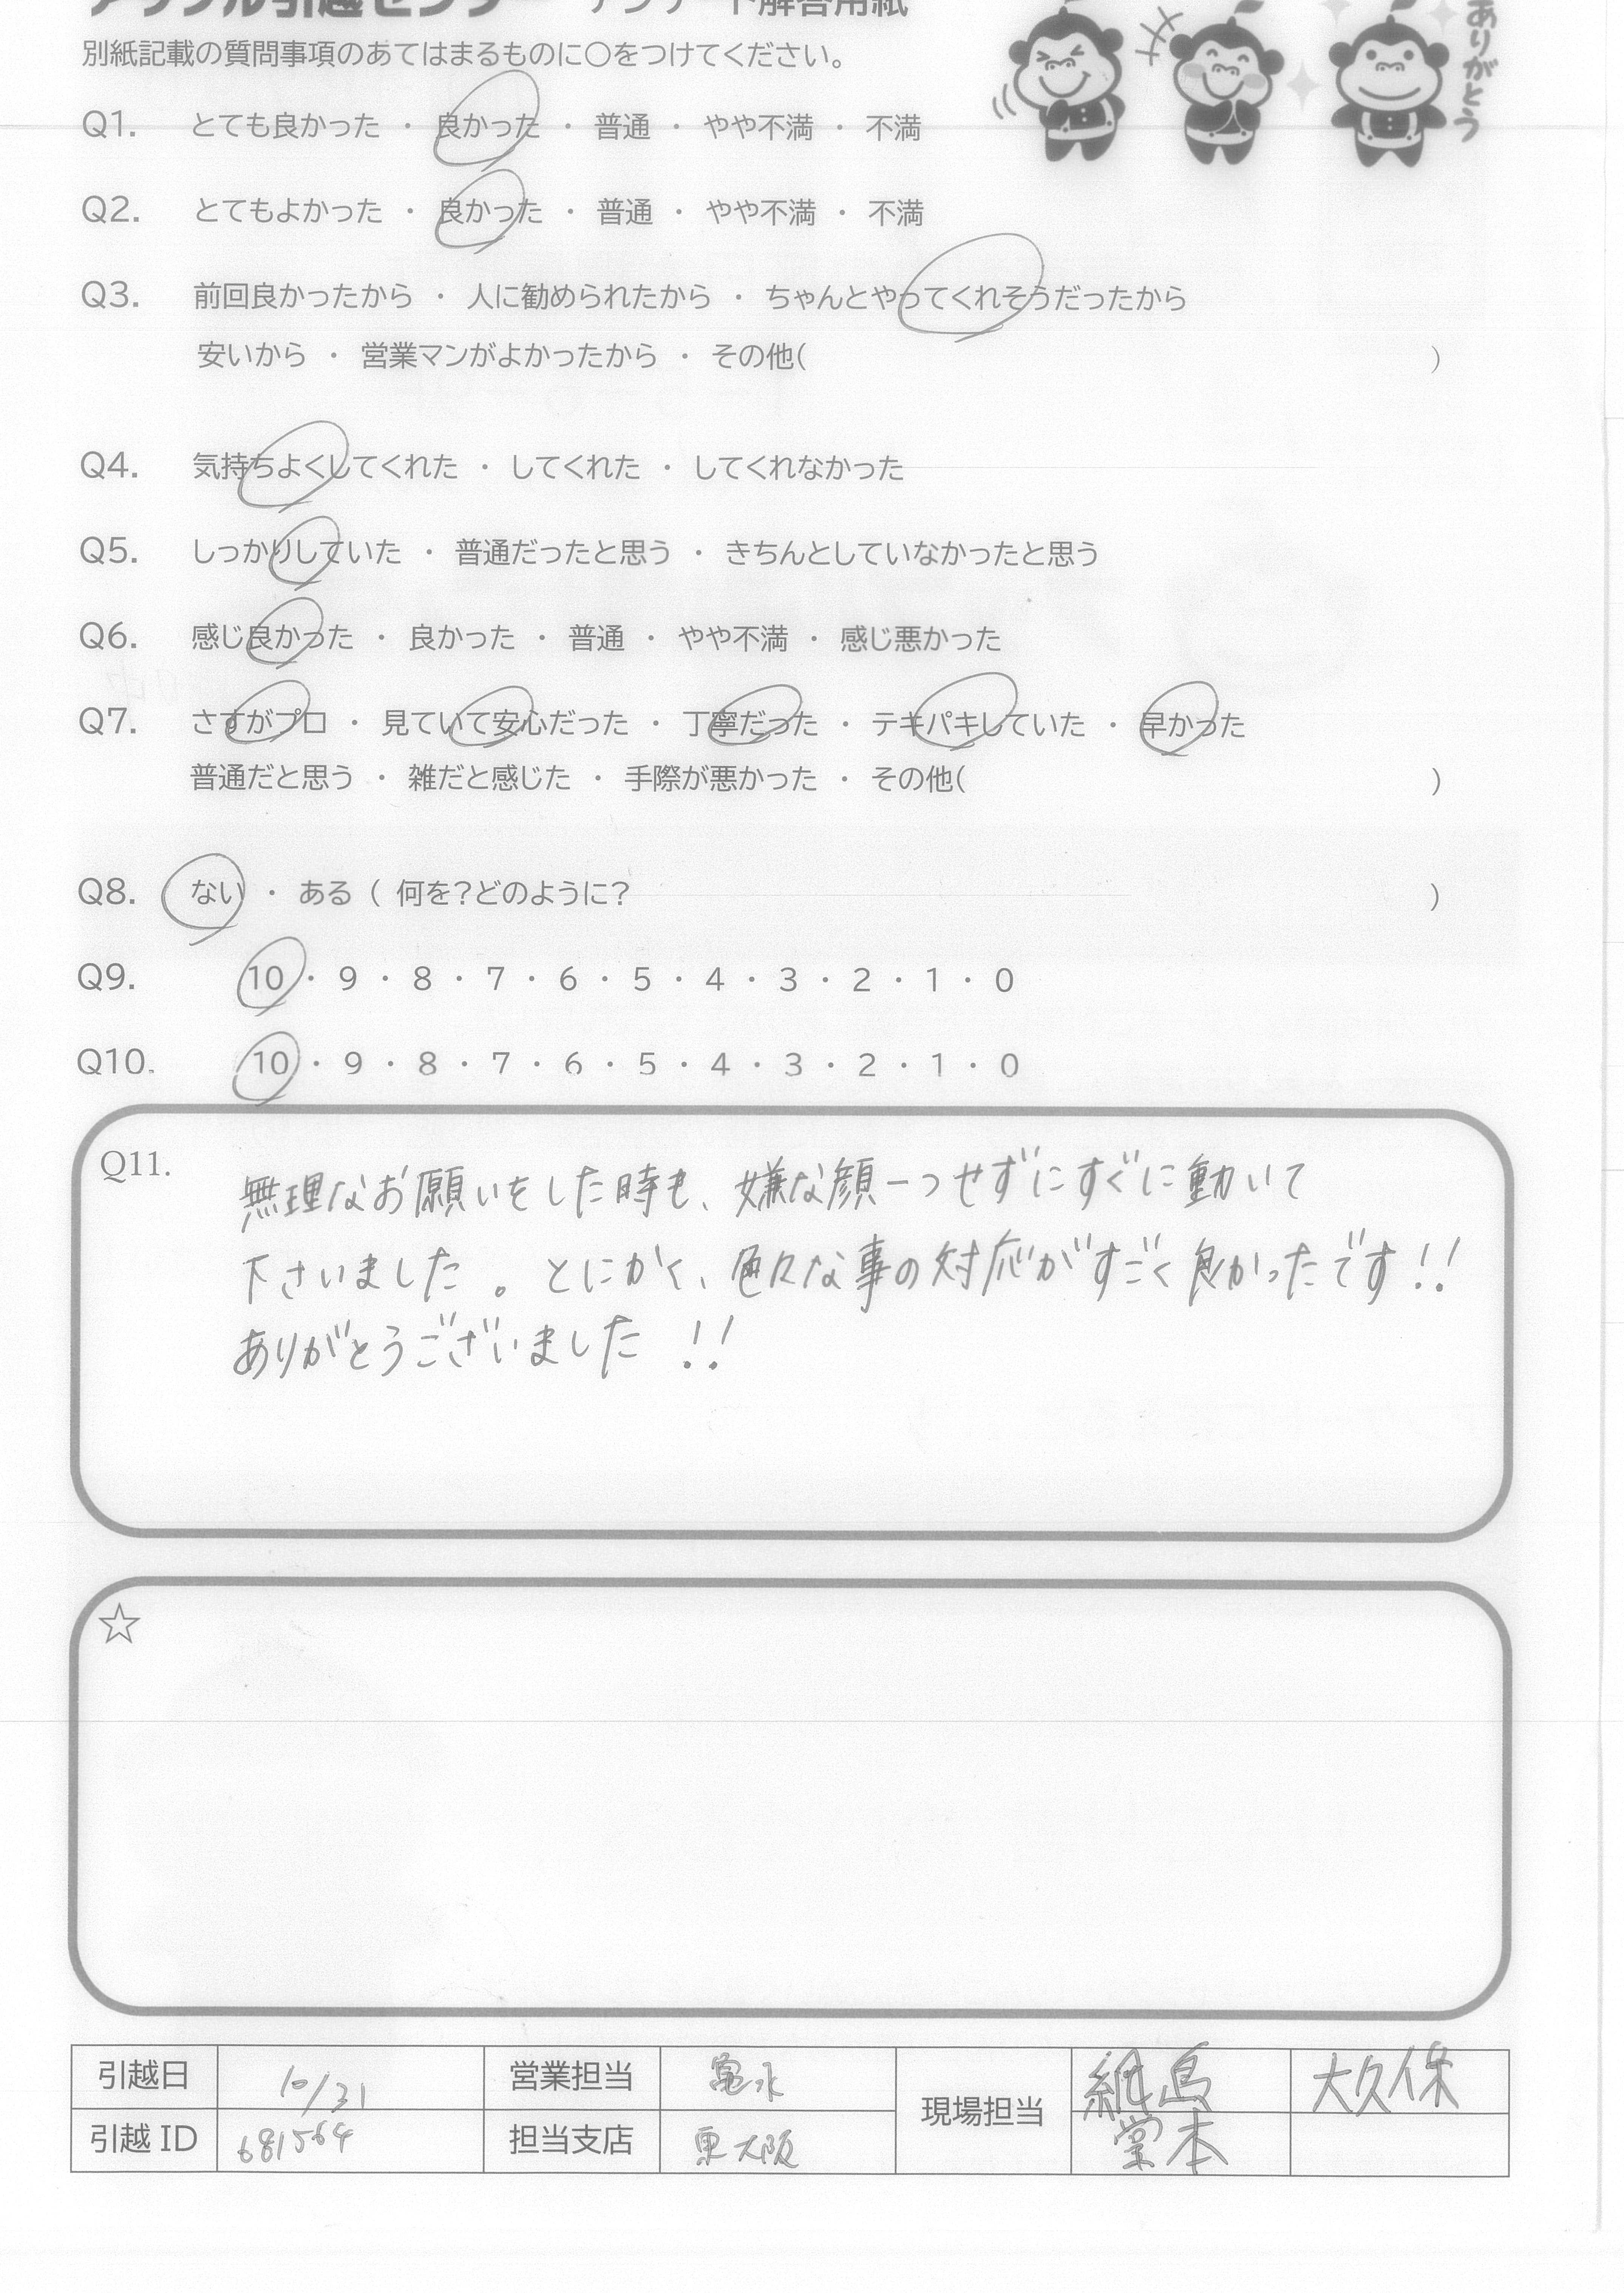 アップル引越センター アンケート解答用紙
別紙記載の質問事項のあてはまるものに○をつけてください。
ありがとう
Q1. とても良かった ・ 良かった ・ 普通 ・ やや不満 ・ 不満
Q2. とてもよかった ・ 良かった ・ 普通 ・ やや不満 ・ 不満
Q3. 前回良かったから ・ 人に勧められたから ・ ちゃんとやってくれそうだったから
安いから ・ 営業マンがよかったから ・ その他( )
Q4. 気持ちよくしてくれた ・ してくれた ・ してくれなかった
Q5. しっかりしていた ・ 普通だったと思う ・ きちんとしていなかったと思う
Q6. 感じ良かった ・ 良かった ・ 普通 ・ やや不満 ・ 感じ悪かった
Q7. さすがプロ ・ 見ていて安心だった ・ 丁寧だった ・ テキパキしていた ・ 早かった
普通だと思う ・ 雑だと感じた ・ 手際が悪かった ・ その他( )
Q8. ない ・ ある ( 何を?どのように? )
Q9. 10 ・ 9 ・ 8 ・ 7 ・ 6 ・ 5 ・ 4 ・ 3 ・ 2 ・ 1 ・ 0
Q10. 10 ・ 9 ・ 8 ・ 7 ・ 6 ・ 5 ・ 4 ・ 3 ・ 2 ・ 1 ・ 0
Q11. 無理なお願いをした時も、嫌な顔一つせずにすぐに動いて
下さいました。とにかく、色々な事の対応がすごく良かったです!!
ありがとうございました!!
☆
引越日 10/31 営業担当 亀水 現場担当 大久保
引越 ID 681564 担当支店 東大阪 堂本